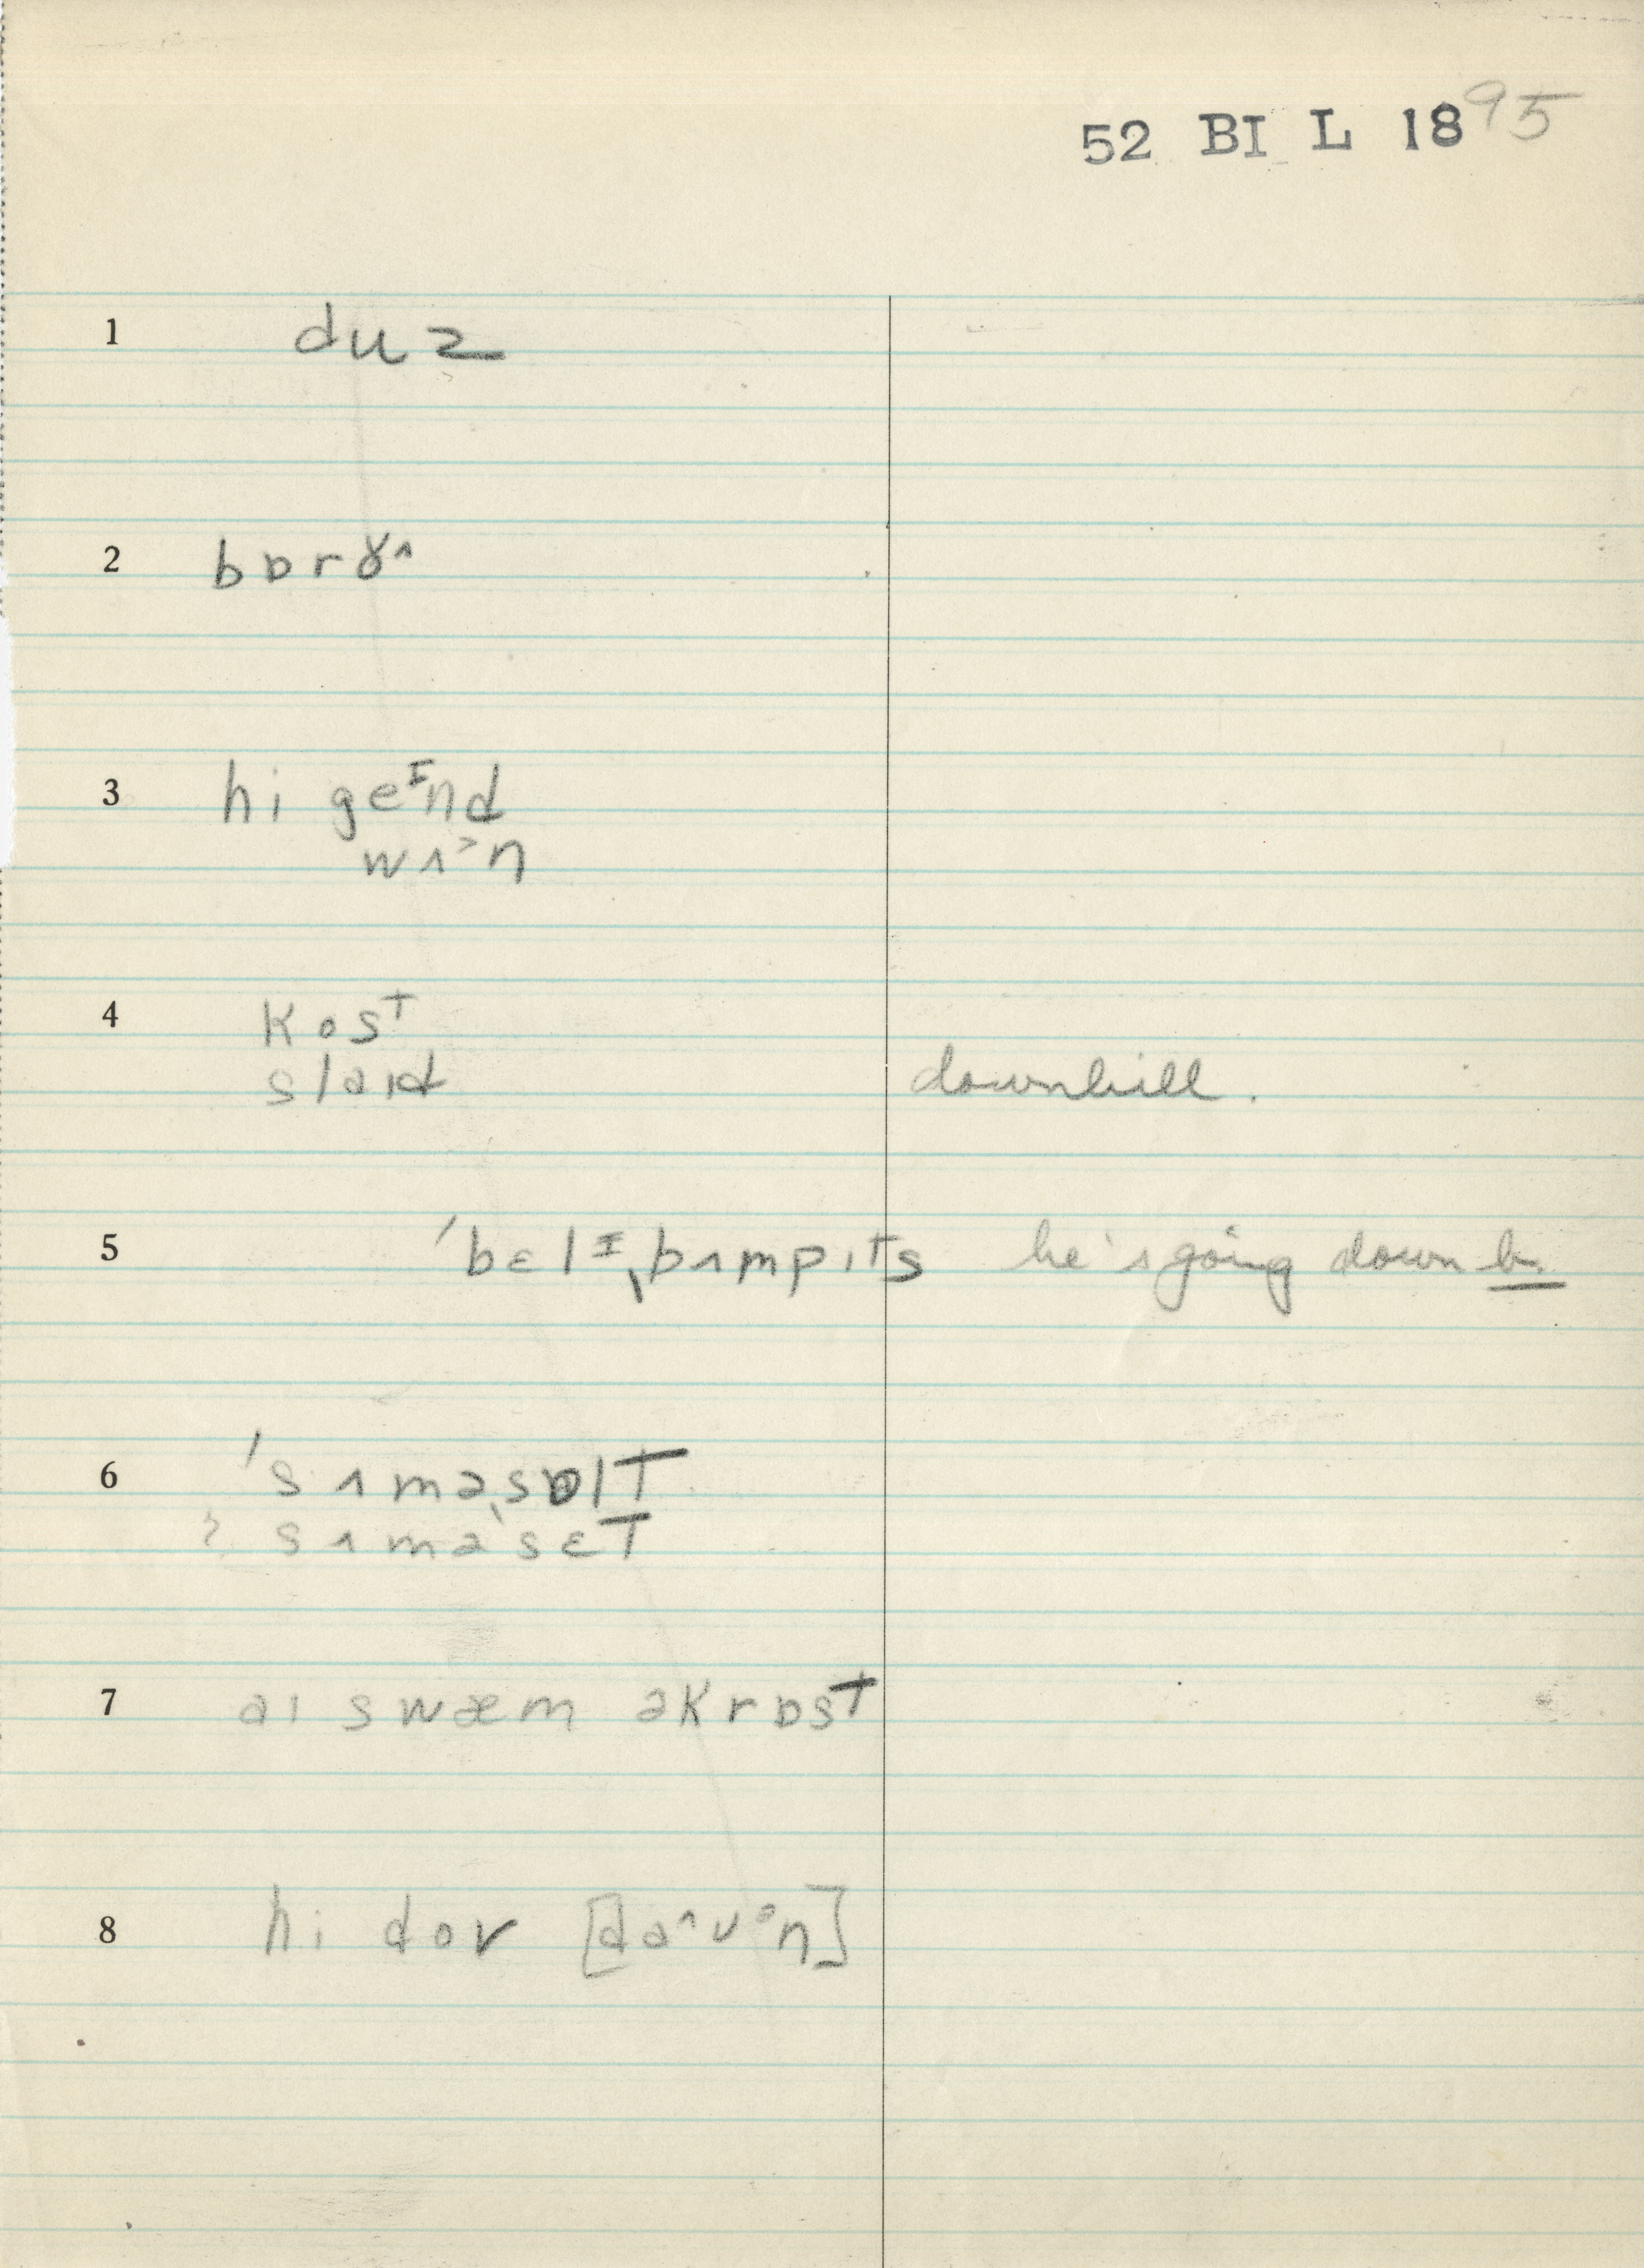 52 BI L 1895
1 duz
2 bɒrɤ^
3 hi geᴵnd
wʌ˃n
4 kosᵀ
slaɪd downhill.
5 ˈbɛlᴵˌbʌmpɪts he's going down b.
6 ˈsʌməˌsɒlt
? sʌməˈsɛt
7 aɪ swæm əkrɒst
8 hi dov [da^ʊᵊn]